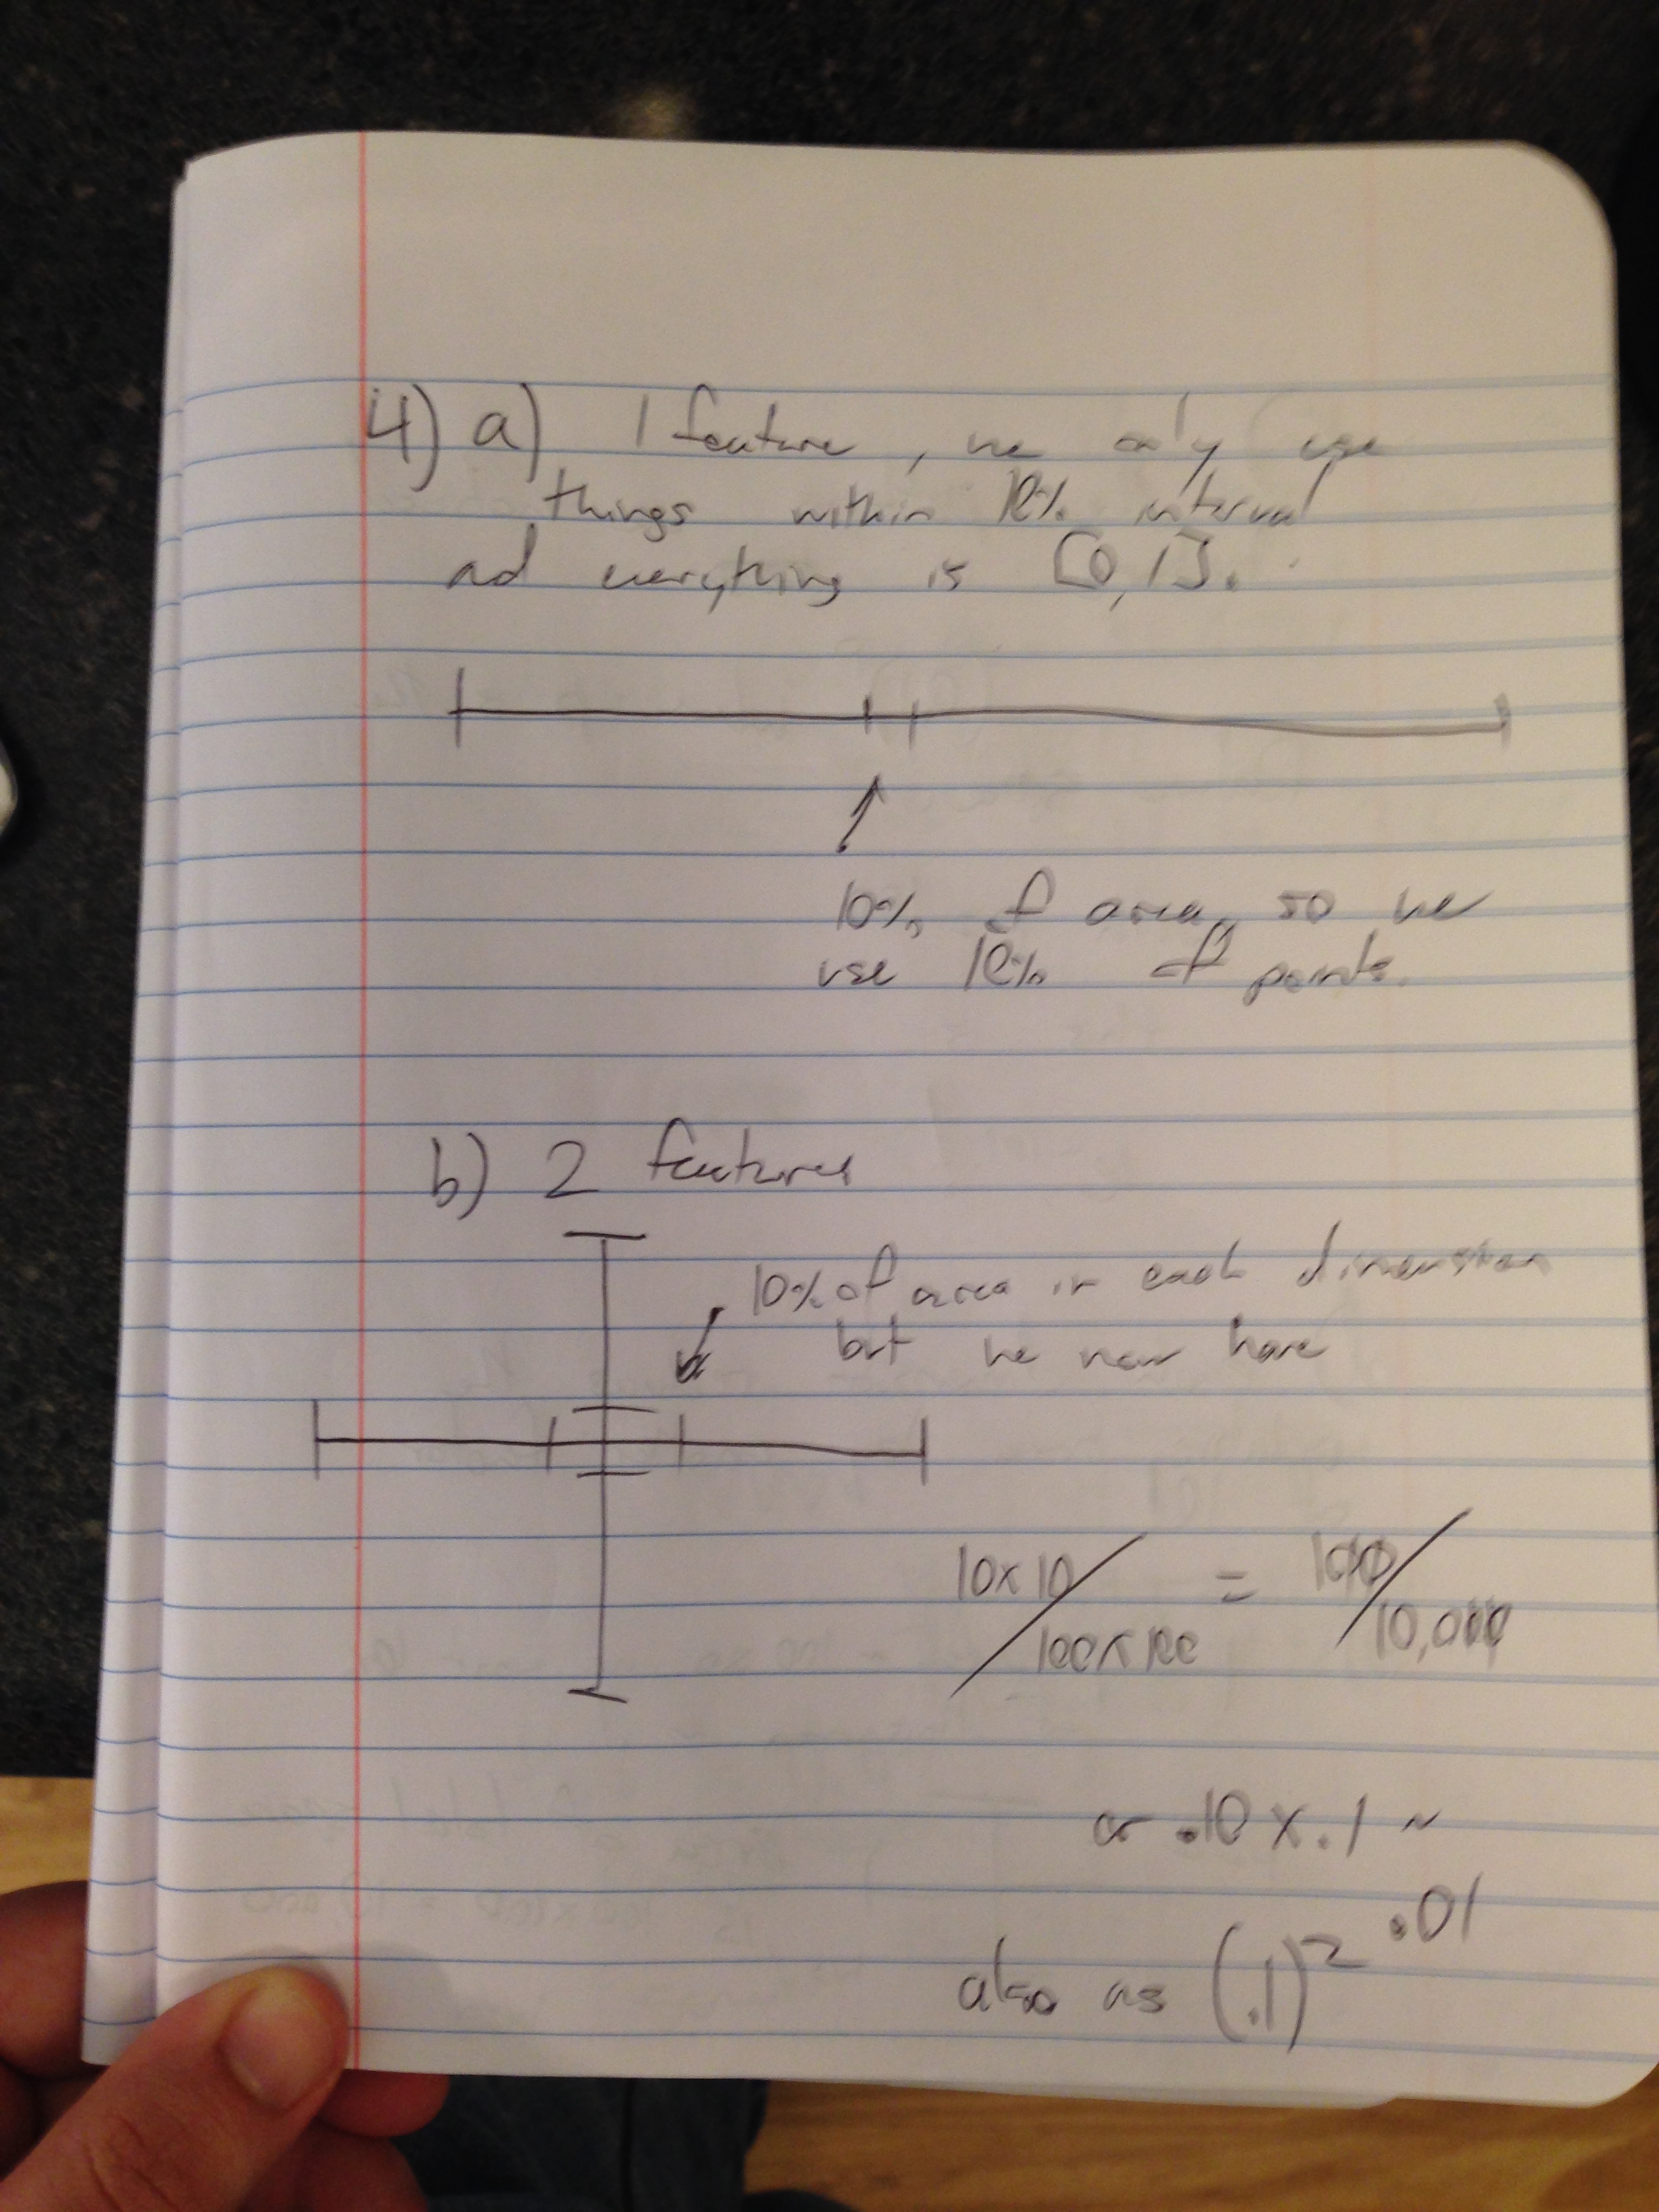 4) a) 1 feature, we only use
things within 10% interval
and everything is [0,1].
10% of area, so we
use 10% of points.
b) 2 features
10% of area in each dimension
but we now have
10x10/100x100 = 100/10,000
or .10 x .1 ~
.01
also as (.1)²